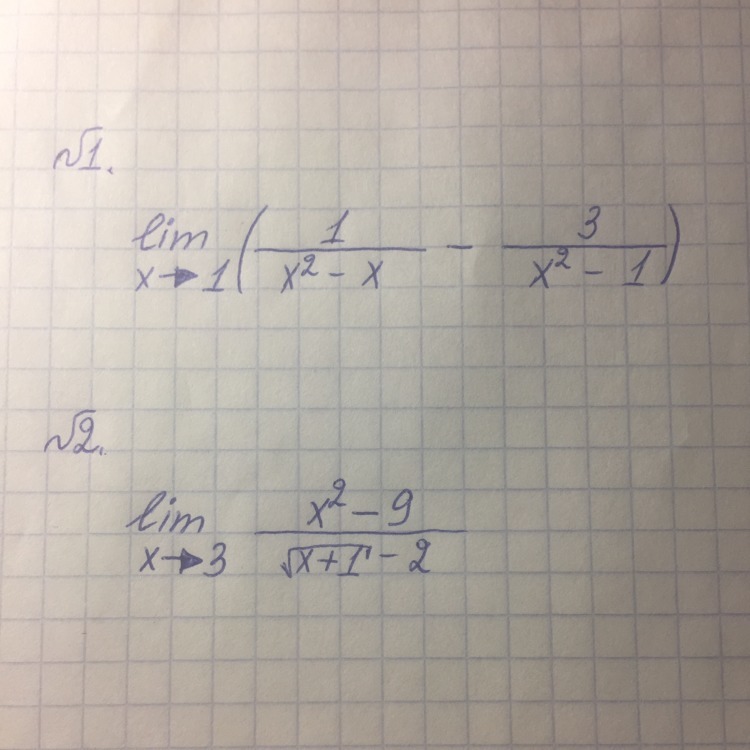 №1.
lim x→1 (1/(x² - x) - 3/(x² - 1))
№2.
lim x→3 (x² - 9)/(√(x+1) - 2)